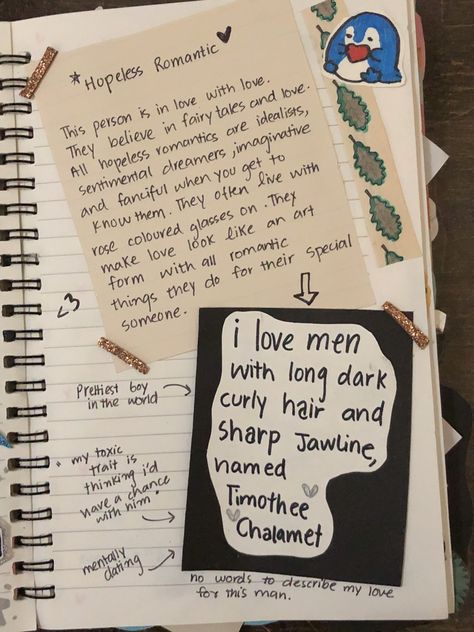 * Hopeless Romantic ♥
This person is in love with love.
They believe in fairytales and love.
All hopeless romantics are idealists,
sentimental dreamers, imaginative
and fanciful when you get to
know them. They often live with
rose coloured glasses on. They
make love look like an art
form with all romantic
things they do for their special
someone.
<3
i love men
with long dark
curly hair and
sharp Jawline,
named
Timothee
Chalamet
Prettiest boy
in the world
"my toxic
trait is
thinking i'd
have a chance
with him"
mentally
dating
no words to describe my love
for this man.